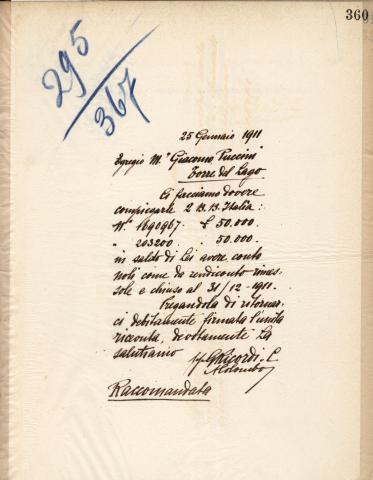 360
295
367
25 Gennaio 1911
Egregio M.° Giacomo Puccini
Torre del Lago
Ci facciamo dovere
compiegarle 2 B.B. Italia:
N.° 1690967. £ 50.000.
" 203200. " 50.000.
in saldo di Lei avere conto
noli come da rendiconto rimes-
sole e chiuso al 31/12-1911.
Pregandola di ritornar-
ci debitamente firmata l'unita
ricevuta, devotamente La
salutiamo
G Ricordi & C
Raccomandata